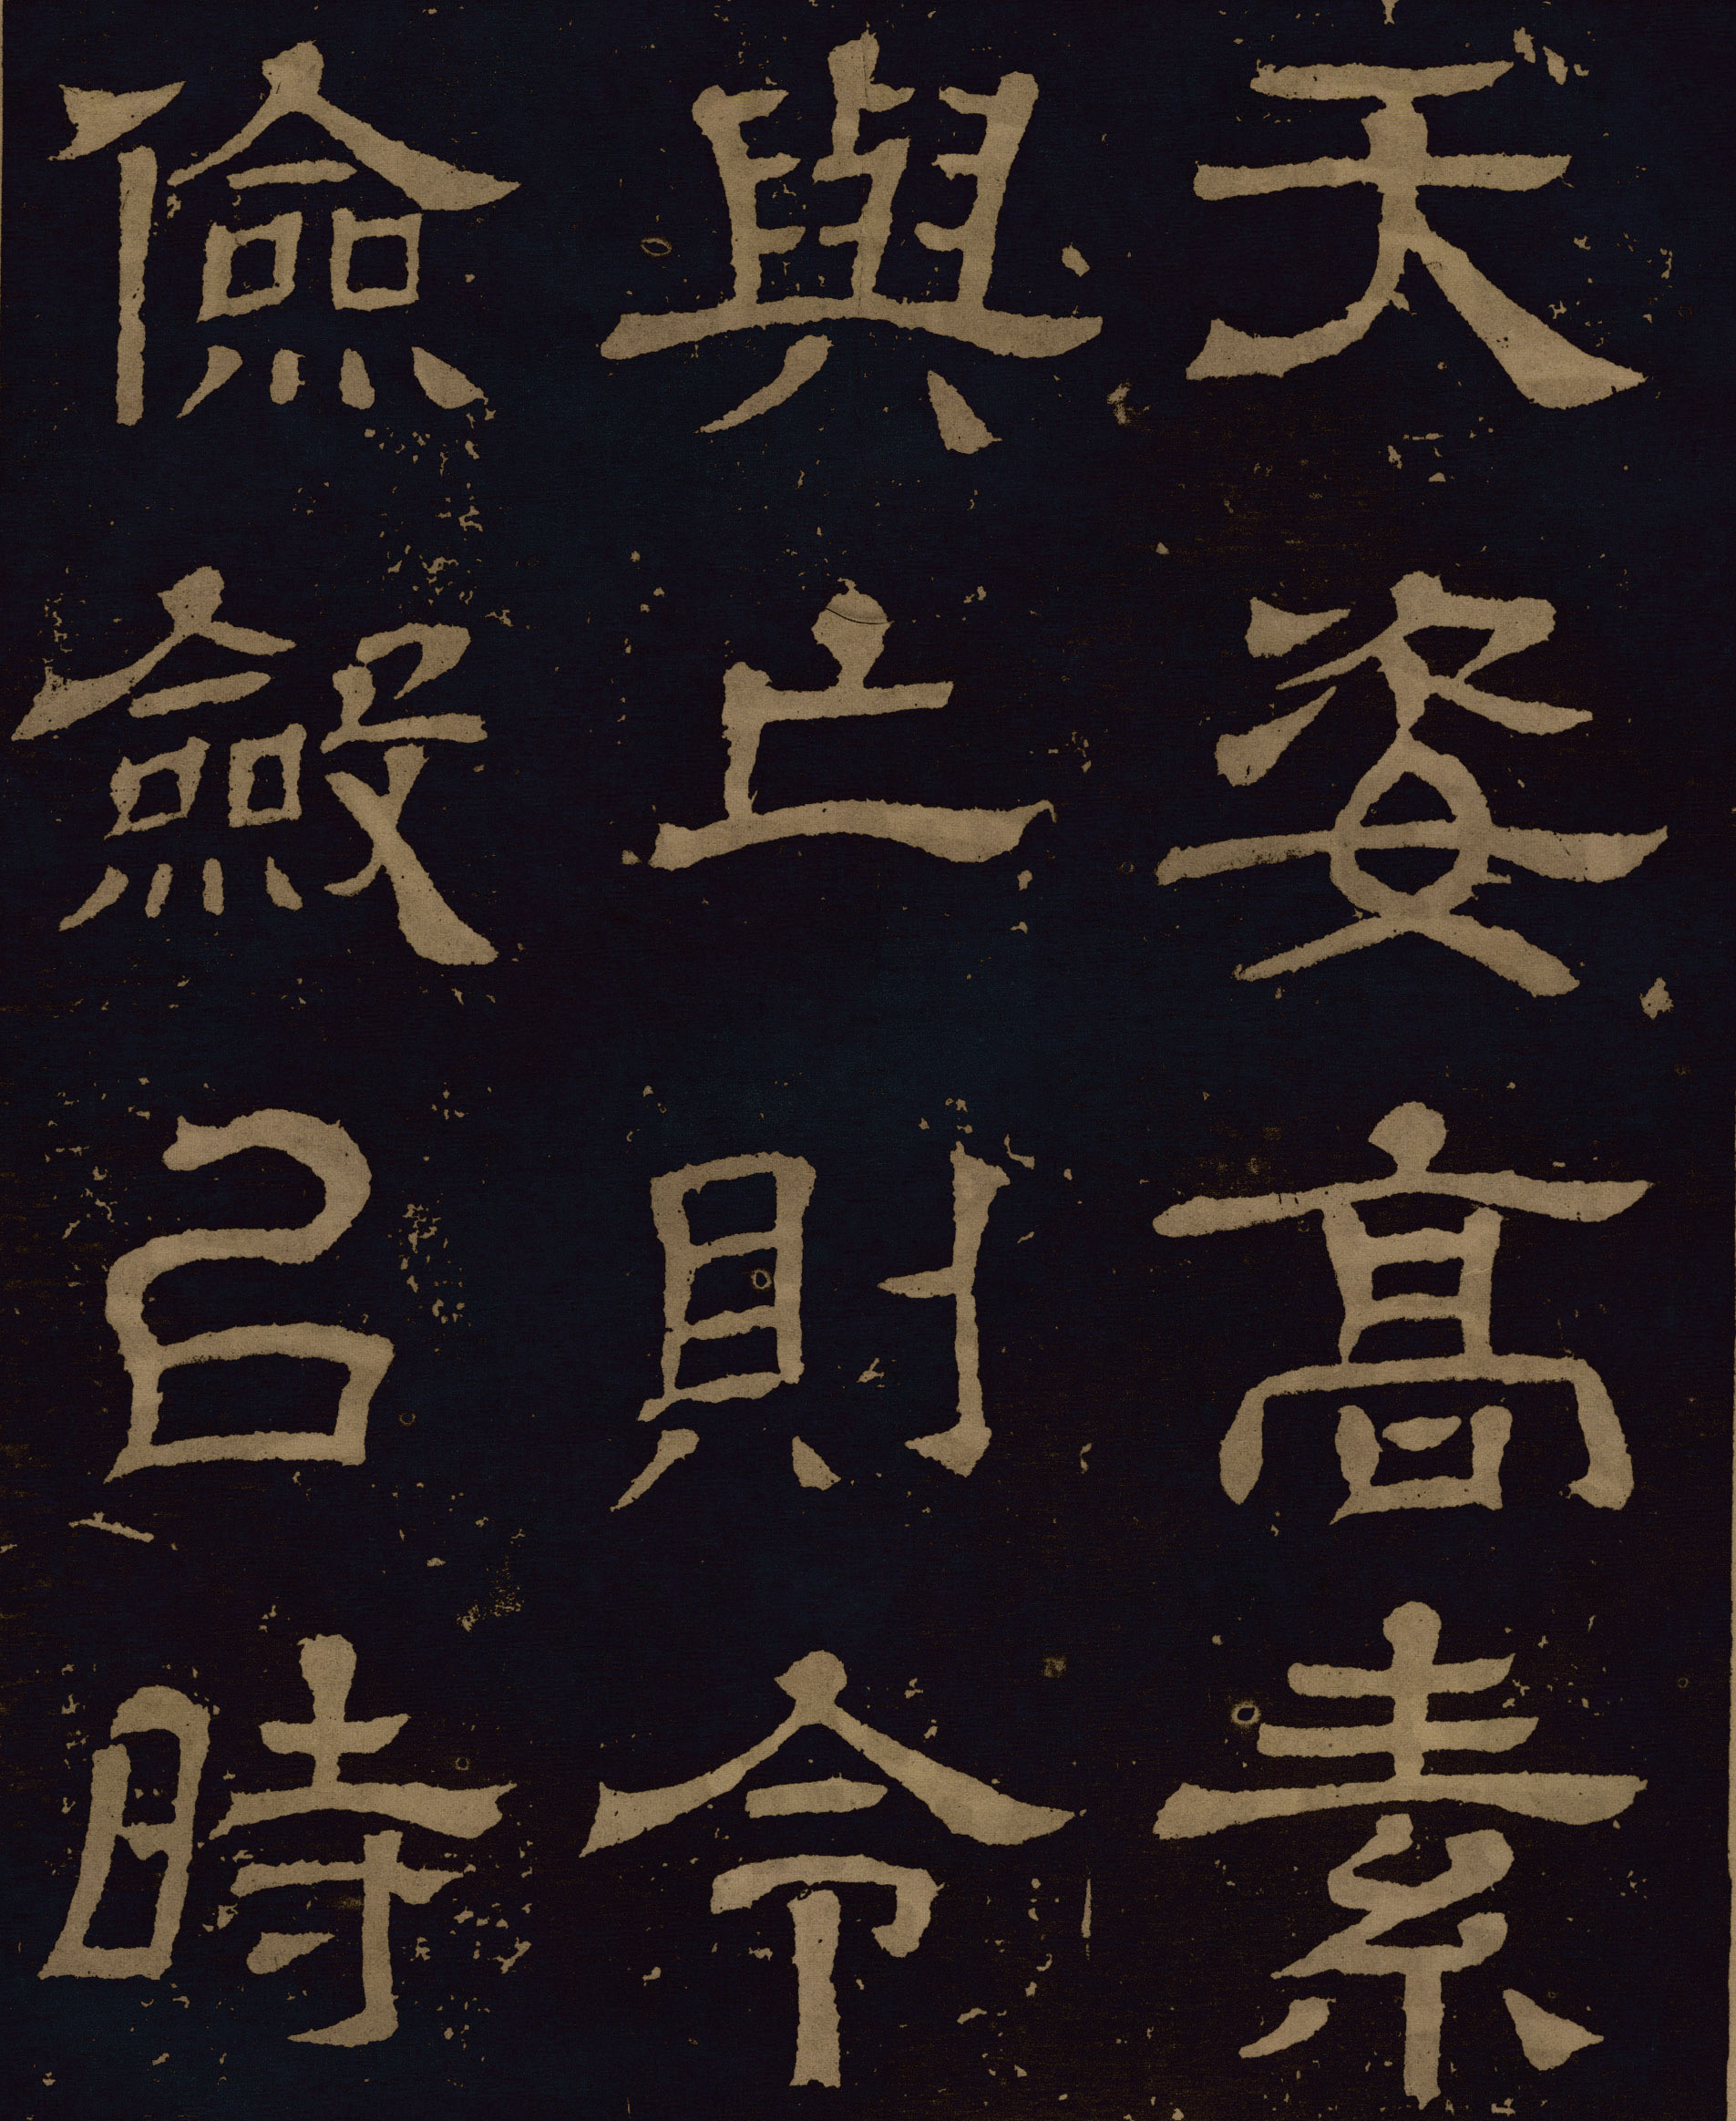 天姿高素
與亡則令
儉斂㠯時